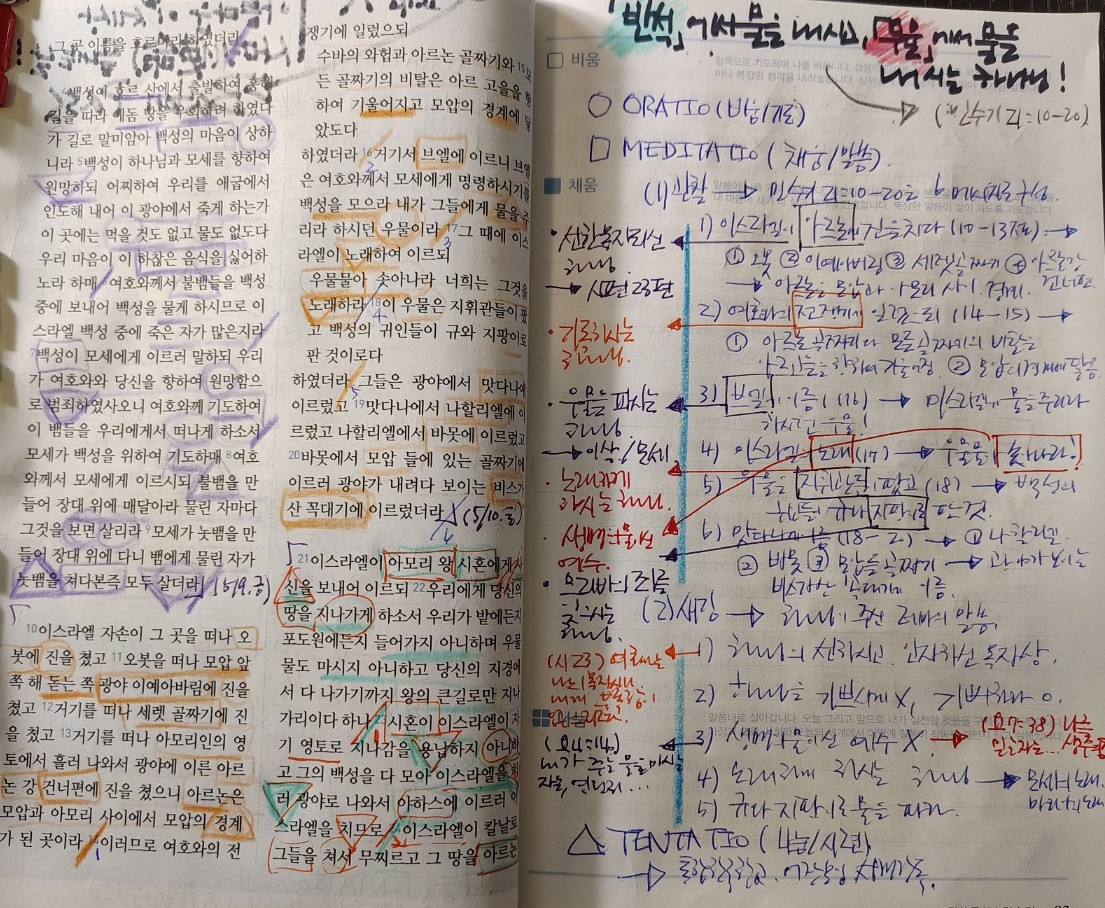 그 곳 이름을 호르마라 하였더라
4백성이 호르 산에서 출발하여 홍해
길을 따라 에돔 땅을 우회하려 하였다
가 길로 말미암아 백성의 마음이 상하
니라 5백성이 하나님과 모세를 향하여
원망하되 어찌하여 우리를 애굽에서
인도해 내어 이 광야에서 죽게 하는가
이 곳에는 먹을 것도 없고 물도 없도다
우리 마음이 이 하찮은 음식을 싫어하
노라 하매 6여호와께서 불뱀들을 백성
중에 보내어 백성을 물게 하시므로 이
스라엘 백성 중에 죽은 자가 많은지라
7백성이 모세에게 이르러 말하되 우리
가 여호와와 당신을 향하여 원망함으
로 범죄하였사오니 여호와께 기도하여
이 뱀들을 우리에게서 떠나게 하소서
모세가 백성을 위하여 기도하매 8여호
와께서 모세에게 이르시되 불뱀을 만
들어 장대 위에 매달아라 물린 자마다
그것을 보면 살리라 9모세가 놋뱀을 만
들어 장대 위에 다니 뱀에게 물린 자가
놋뱀을 쳐다본즉 모두 살더라 (5/9.금)
10이스라엘 자손이 그 곳을 떠나 오
봇에 진을 쳤고 11오봇을 떠나 모압 앞
쪽 해 돋는 쪽 광야 이예아바림에 진을
쳤고 12거기를 떠나 세렛 골짜기에 진
을 쳤고 13거기를 떠나 아모리인의 영
토에서 흘러 나와서 광야에 이른 아르
논 강 건너편에 진을 쳤으니 아르논은
모압과 아모리 사이에서 모압의 경계
가 된 곳이라 14이러므로 여호와의 전
쟁기에 일렀으되
수바의 와헙과 아르논 골짜기와 15모
든 골짜기의 비탈은 아르 고을을 향
하여 기울어지고 모압의 경계에 닿
았도다
하였더라 16거기서 브엘에 이르니 브엘
은 여호와께서 모세에게 명령하시기를
백성을 모으라 내가 그들에게 물을 주
리라 하시던 우물이라 17그 때에 이스
라엘이 노래하여 이르되
우물물아 솟아나라 너희는 그것을
노래하라 18이 우물은 지휘관들이 팠
고 백성의 귀인들이 규와 지팡이로
판 것이로다
하였더라 그들은 광야에서 맛다나에
이르렀고 19맛다나에서 나할리엘에 이
르렀고 나할리엘에서 바못에 이르렀고
20바못에서 모압 들에 있는 골짜기에
이르러 광야가 내려다 보이는 비스가
산 꼭대기에 이르렀더라 (5/10.토)
21이스라엘이 아모리 왕 시혼에게 사
신을 보내어 이르되 22우리에게 당신의
땅을 지나가게 하소서 우리가 밭에든지
포도원에든지 들어가지 아니하며 우물
물도 마시지 아니하고 당신의 지경에
서 다 나가기까지 왕의 큰길로만 지나
가리이다 하나 23시혼이 이스라엘이 자
기 영토로 지나감을 용납하지 아니하
고 그의 백성을 다 모아 이스라엘을 치
러 광야로 나와서 야하스에 이르러 이
스라엘을 치므로 24이스라엘이 칼날로
그들을 쳐서 무찌르고 그 땅을 아르논
「반석」에서 물을 내시고, 「우물」에서 물을
내시는 하나님!
(민수기 21:10-20)
비움
○ ORATIO (비움/기도)
□ MEDITATIO (채움/말씀).
채움
(1) 관찰 → 민수기 21:10-20은 6 메시지로 구성.
1) 이스라엘이 아르논에 진을 치다 (10-13절) →
① 오봇 ② 이예아바림 ③ 세렛골짜기 ④ 아르논강 건너편
→ 아르논은 모압과 아모리 사이 경계.
2) 여호와의 전쟁기에 일렀으되 (14-15) →
① 아르논 골짜기와 모든 골짜기의 비탈은
아르고을을 향하여 기울어짐. ② 모압의 경계에 닿음.
3) 브엘에 이름 (16) → 이스라엘에게 물을 주리라
하시던 우물!
4) 이스라엘 노래 (17) → 우물물아 솟아나라!
5) 우물은 지휘관들이 팠고 (18) → 백성의
귀인들이 규와 지팡이로 판 것.
6) 맛다나에 (18-2) → ① 나할리엘
② 바못 ③ 모압 들 골짜기 → 광야가 보이는
비스가산 꼭대기에 이름.
• 선한 목자되신
하나님.
→ 시편 23편
• 기록하시는
하나님.
• 우물을 파시는
하나님
→ 이삭/모세
• 노래하게
하시는 하나님.
• 생명의 물 되신
예수.
하나님.
(2) 새김 → 하나님이 주신 레마의 말씀.
1) 하나님의 선하시고 인자하신 목자상.
2) 하나님은 기쁘시게 X, 기뻐하라 O.
3) 생명의 물이신 예수 X. → (요 7:38) 나를
믿는 자는...
4) 노래하게 하시는 하나님 → 모세의 노래.
5) 규와 지팡이로 물을 파라.
(시 23) 여호와는
나의 목자시니
(요 4:14)
내가 주는 물을 마시는
자는, 영원히...
△ TENTATIO (나눔/시련)